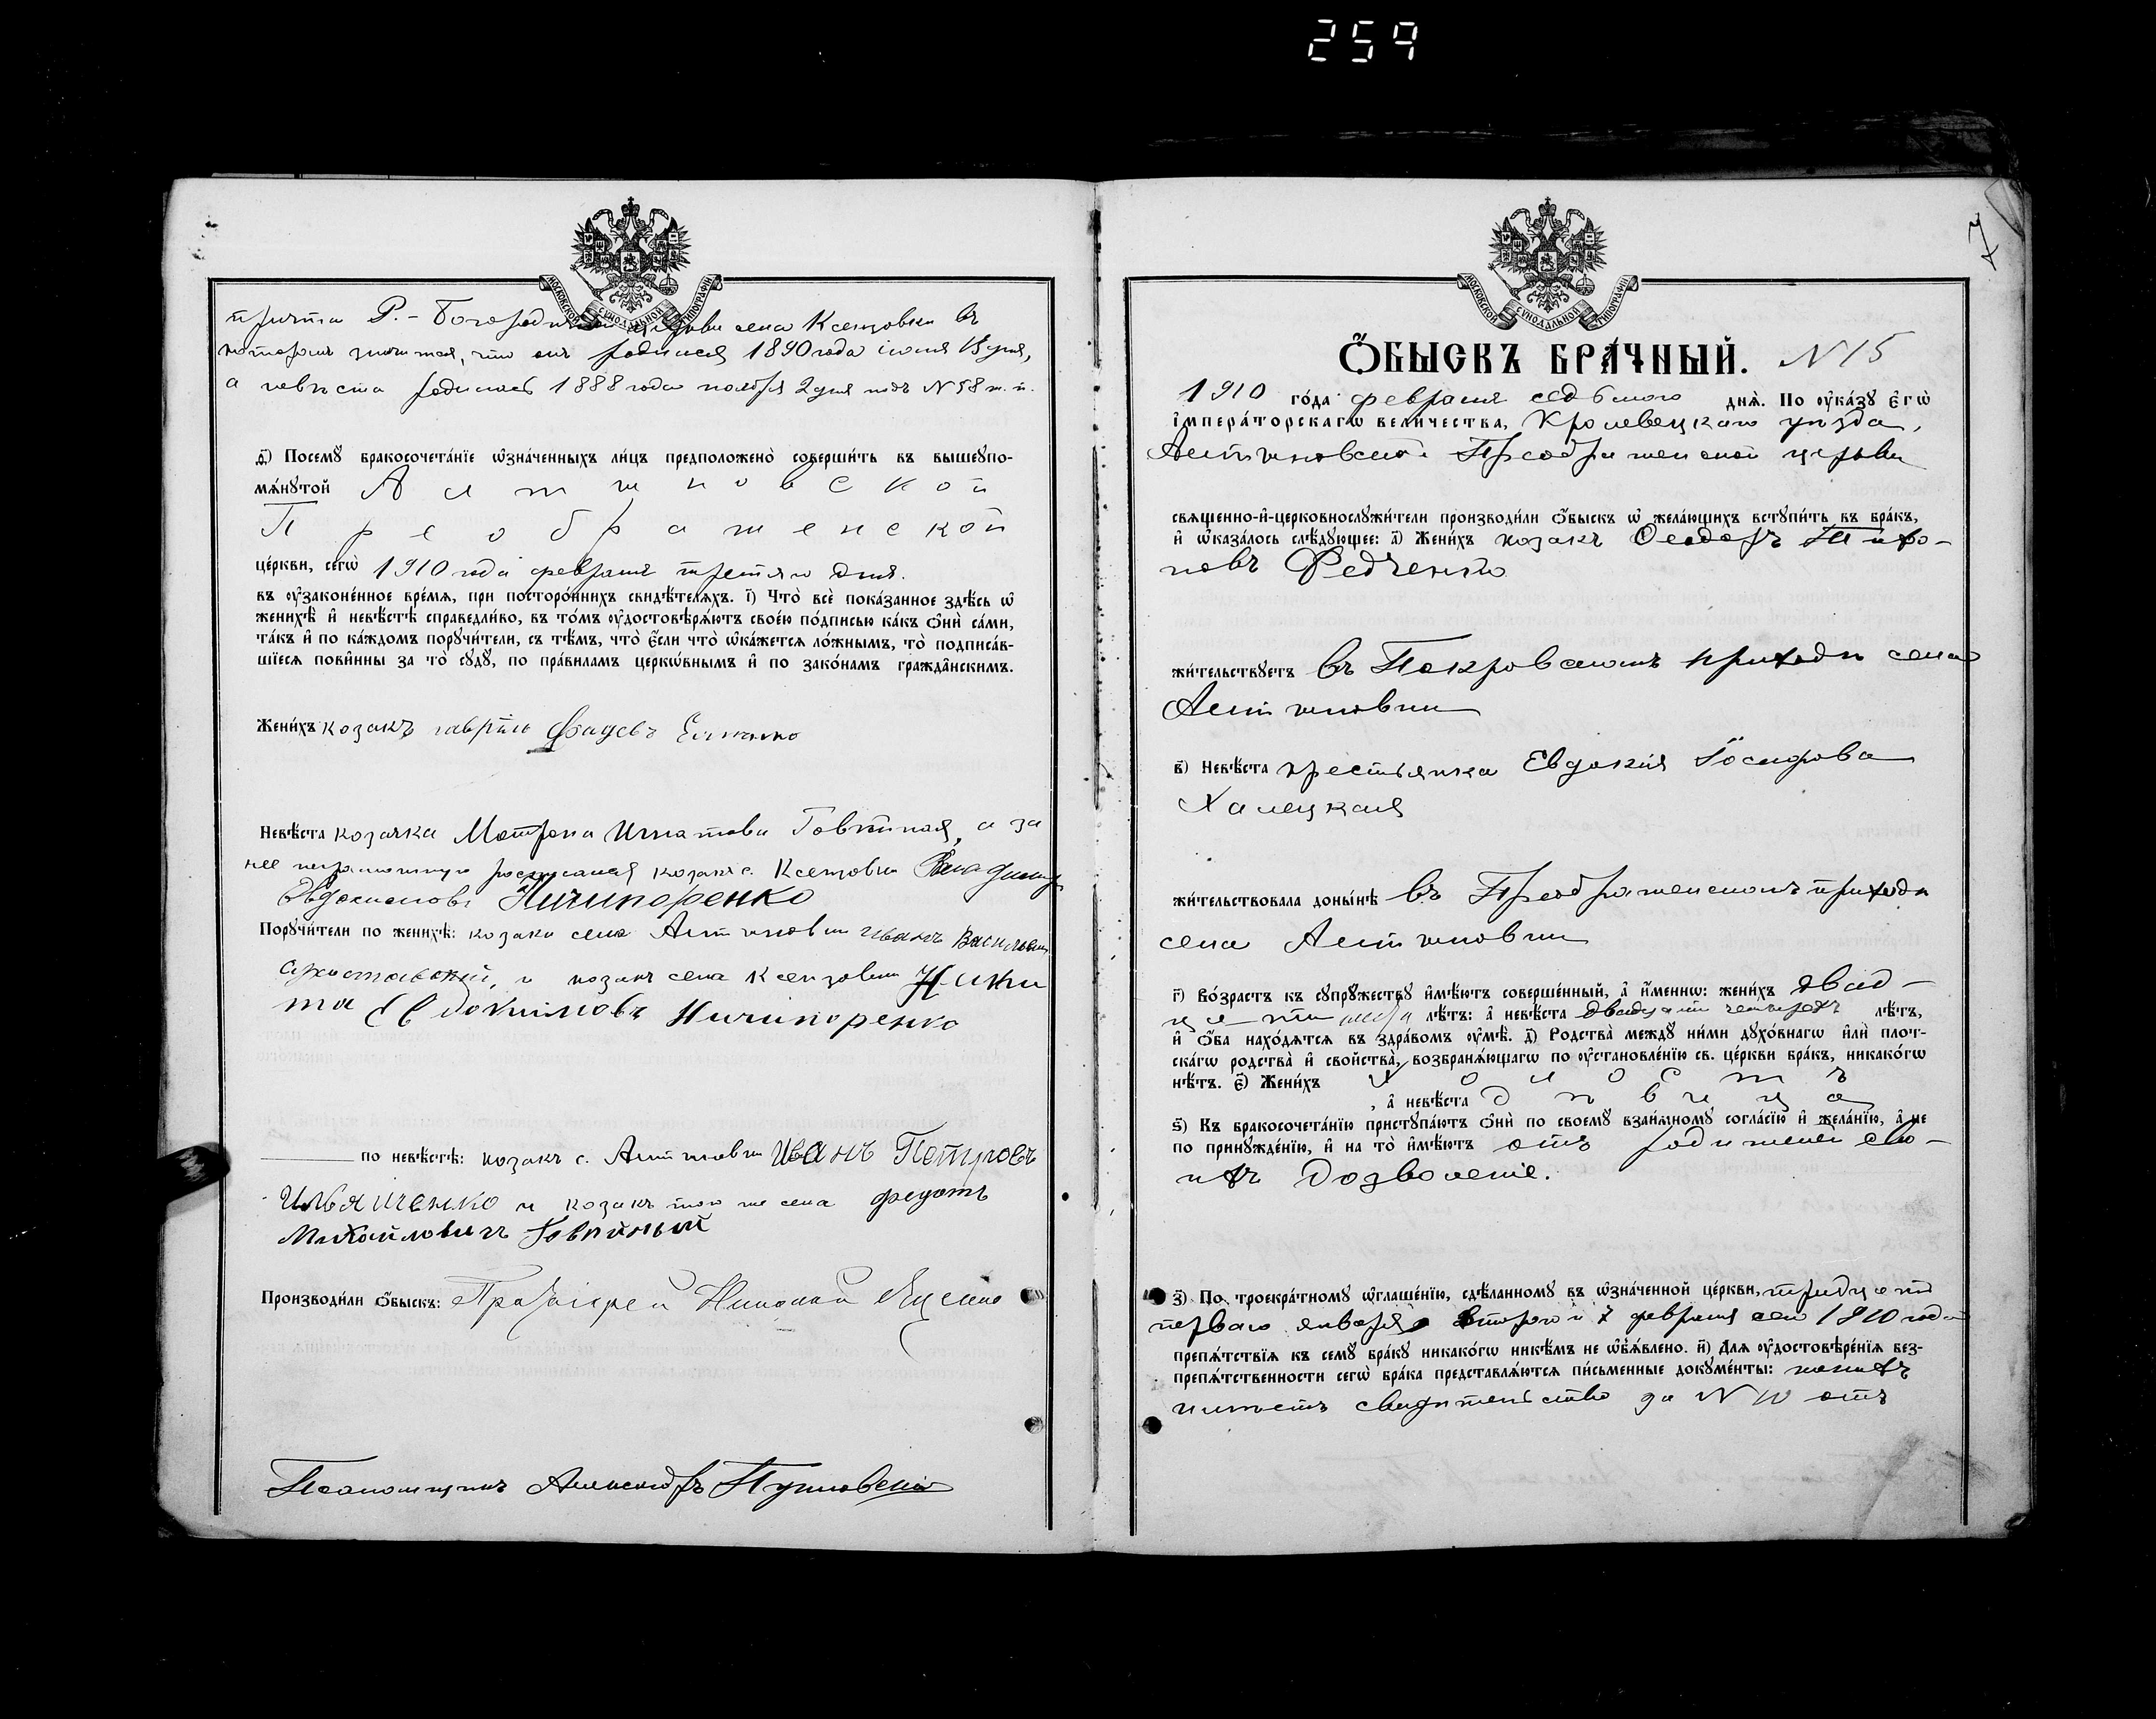 259
7
причта Р.-Богородичной церкви села Ксензовки въ
которомъ значится, что онъ родился 1890 года іюля 13 дня,
а невѣста родилась 1888 года ноября 2 дня подъ N 58 ж. п.
МОСКОВСКОЙ СѴНОДАЛЬНОЙ ТИПОГРАФІИ
д҃) Посемꙋ бракосочета́нїе ѡ҆зна́ченныхъ ли́цъ предположено̀ соверши́ть въ вышеꙋпо-
мѧ́нꙋтой Алтыновской
Преображенской
це́ркви, сегѡ̀ 1910 года февраля третьяго дня.
въ ᲂу҆зако́ненное вре́мѧ, при посторо́ннихъ свидѣ́телѧхъ. і҃) Что̀ всѐ пока́занное здѣ́сь ѡ҆
женихѣ̀ и҆ невѣ́стѣ справедли́во, въ то́мъ ᲂу҆достовѣрѧ́ютъ свое́ю по́дписью ка́къ ѻ҆нѝ са́ми,
та́къ и҆ по ка́ждомъ порꙋчи́тели, съ тѣ́мъ, что̀ є҆́сли что̀ ѡ҆ка́жетсѧ ло́жнымъ, то̀ подписа́в-
шїесѧ пови́нны за то̀ сꙋдꙋ̀, по пра́виламъ церкѡ́внымъ и҆ по зако́намъ гражда̂нскимъ.
Жени́хъ козакъ Гаврiилъ Фадѣевъ
Невѣ́ста козачка Матрона Игнатова Говтиная, а за
нее неграмотную росписался козакъ с. Ксензовки Владимиръ
Евдокимовъ Ничипоренко
Порꙋчи́тели по женихѣ̀: козаки села Алтыновки Иванъ Васильевичъ
и козакъ села Ксензовки Ники
та Евдокимовъ Ничипоренко
по невѣ́стѣ: козакъ с. Алтыновки Иванъ Петровъ
Ильяшенко и козакъ того же села Федотъ
Михайловичъ Говтиный
Производи́ли ѻ҆́быскъ: Протоіерей Николай Яценко
Псаломщикъ Александръ
МОСКОВСКОЙ СѴНОДАЛЬНОЙ ТИПОГРАФІИ
Ѻ҆́БЫСКЪ БРА́ЧНЫЙ. N 15
1910 го́да февраля седьмого днѧ̀. По ᲂу҆ка́зꙋ є҆гѡ̀
і҆мпера́торскагѡ вели́чества, Кролевецкаго уѣзда,
Алтыновской Преображенской церкви
свѧще́нно-и҆-церковнослꙋжи́тели производи́ли ѻ҆́быскъ ѡ҆ жела́ющихъ вступи́ть въ бра́къ,
и҆ ѡ҆каза́лось слѣ́дꙋющее: а҃) Жени́хъ козакъ Ѳеодоръ Тихо-
новъ Федченко
жи́тельствꙋетъ въ Покровскомъ приходѣ села
Алтыновки
в҃) Невѣ́ста крестьянка Евдокія Іосифова
Халецкая
жи́тельствовала доны́нѣ въ Преображенскомъ приходѣ
села Алтыновки
г҃) Во́зрастъ къ сꙋпрꙋ́жествꙋ и҆мѣ́ютъ соверше́нный, а҆ и҆́менно: жени́хъ двад-
лѣ́тъ: а҆ невѣ́ста двадцати четырехъ лѣ́тъ,
и҆ ѻ҆́ба нахо́дѧтсѧ въ здра́вомъ ᲂу҆мѣ̀. д҃) Родства̀ междꙋ ни́ми дꙋхо́внагѡ и҆лѝ плот-
ска́гѡ родства̀ и҆ свойства̀, возбранѧ́ющагѡ по ᲂу҆становле́нїю св. це́ркви бра́къ, никако́гѡ
нѣ́тъ. є҃) Жени́хъ холостъ
, а҆ невѣ́ста дѣвица
ѕ҃) Къ бракосочета́нїю пристꙋпа́ютъ ѻ҆нѝ по своемꙋ̀ взаи́мномꙋ согла́сїю и҆ жела́нїю, а҆ не
по принꙋжде́нїю, и҆ на то̀ и҆мѣ́ютъ отъ родителей сво-
ихъ дозволеніе.
з҃) По троекра́тномꙋ ѡ҆глаше́нїю, сдѣ́ланномꙋ въ ѡ҆зна́ченной це́ркви, тридцать
перваго января, второго и 7 февраля сего 1910 года
препѧ́тствїѧ къ семꙋ̀ бра́кꙋ никако́гѡ никѣ́мъ не ѡ҆б̾ѧ́влено. и҃) Длѧ ᲂу҆достовѣре́нїѧ без-
препѧ́тственности сегѡ̀ бра́ка представлѧ́ютсѧ пи́сьменные докꙋме́нты: женихъ
имѣетъ свидѣтельство за N 10 отъ